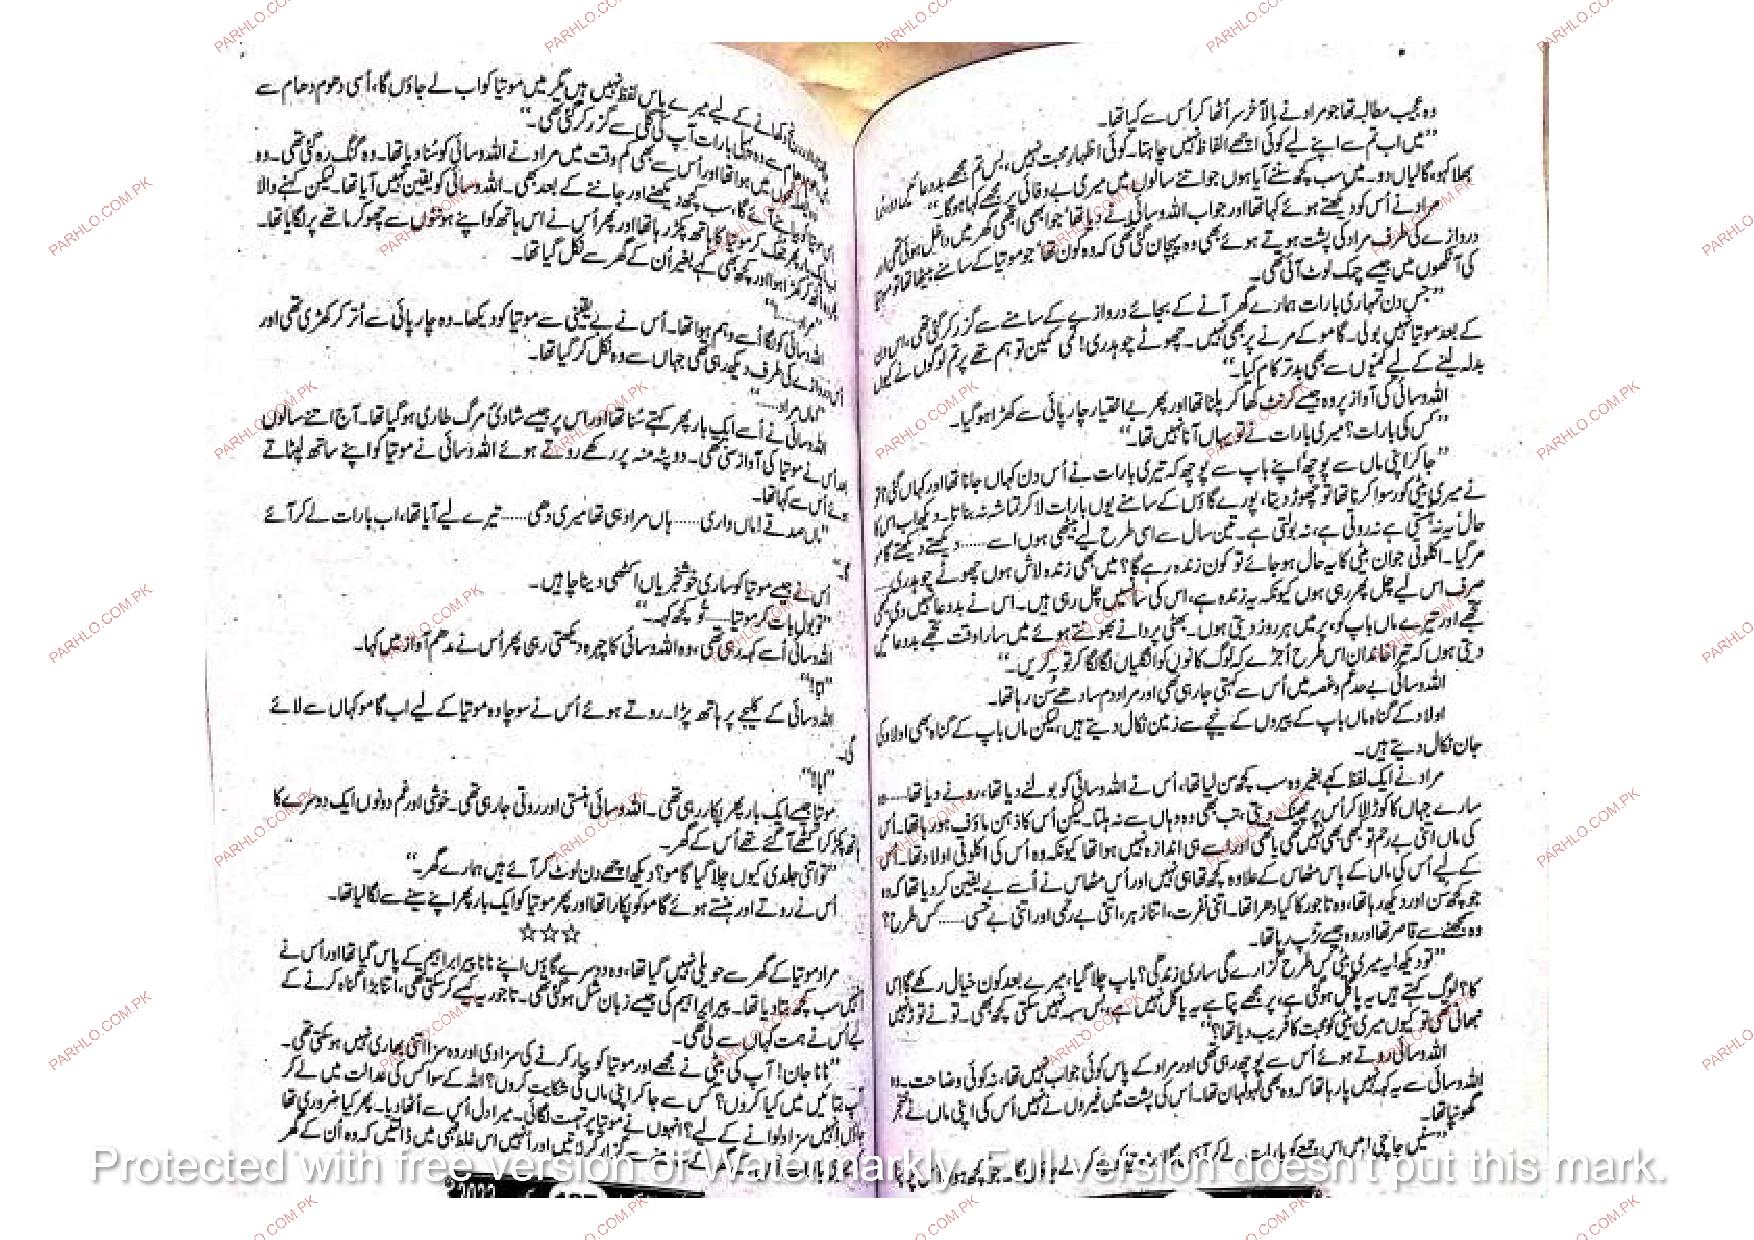 وہ عجیب مطالبہ تھا جو مراد نے بالآخر سر اُٹھا کر اُس سے کیا تھا۔
”میں اب تم سے اپنے لیے کوئی اچھے الفاظ نہیں چاہتا۔ کوئی اظہار محبت نہیں، بس تم مجھے بددعا
بھلا کہو، گالیاں دو۔ میں سب کچھ سننے آیا ہوں جو اتنے سالوں میں میری بے وفائی پر مجھے کہا ہوگا۔“
مراد نے اُس کو دیکھتے ہوئے کہا تھا اور جواب اللہ وسائی نے دیا تھا جو ابھی ابھی گھر میں داخل ہوئی تھی اور
دروازے کی طرف مراد کی پشت ہوتے ہوئے بھی وہ پہچان گئی تھی کہ وہ کون تھا جو موتیا کے سامنے بیٹھا تھا تو موتیا
کی آنکھوں میں جیسے چمک لوٹ آئی تھی۔
”جس دن تمہاری بارات ہمارے گھر آنے کے بجائے دروازے کے سامنے سے گزر کر گئی تھی، اس دن
کے بعد موتیا نہیں بولی۔ گامو کے مرنے پر بھی نہیں۔ چھوٹے چوہدری! کمی کمین تو ہم تھے پر تم لوگوں نے کیوں
بدلہ لینے کے لیے کمیوں سے بھی بدتر کام کیا۔“
اللہ وسائی کی آواز پر وہ جیسے کرنٹ کھا کر پلٹا تھا اور پھر بے اختیار چارپائی سے کھڑا ہوگیا۔
”کس کی بارات؟ میری بارات نے تو یہاں آنا نہیں تھا۔“
”جا کر اپنی ماں سے پوچھ، اپنے باپ سے پوچھ کہ تیری بارات نے اُس دن کہاں جانا تھا اور کہاں گئی؟ تو
نے میری بیٹی کو رسوا کرنا تھا تو چھوڑ دیتا، پورے گاؤں کے سامنے یوں بارات لا کر تماشہ نہ بناتا۔ دیکھ اب اس کا
حال! یہ نہ ہنستی ہے نہ روتی ہے، نہ بولتی ہے۔ تین سال سے اسی طرح لیے بیٹھی ہوں اسے ...... دیکھتے دیکھتے گامو
مر گیا۔ اکلوتی جوان بیٹی کا یہ حال ہو جائے تو کون زندہ رہے گا؟ میں بھی زندہ لاش ہوں چھوٹے چوہدری......
صرف اس لیے چل پھر رہی ہوں کیونکہ یہ زندہ ہے، اس کی سانسیں چل رہی ہیں۔ اس نے بددعا نہیں دی
تجھے اور تیرے ماں باپ کو، پر میں ہر روز دیتی ہوں۔ بھٹی پر دانے بھونتے ہوئے میں سارا وقت تجھے بددعائیں
دیتی ہوں کہ تیرا خاندان اس طرح اُجڑے کہ لوگ کانوں کو انگلیاں لگا لگا کر توبہ کریں۔“
اللہ وسائی بے حد غم و غصہ میں اُس سے کہتی جا رہی تھی اور مراد دم سادھے سُن رہا تھا۔
اولاد کے گناہ ماں باپ کے پیروں کے نیچے سے زمین نکال دیتے ہیں لیکن ماں باپ کے گناہ بھی اولاد کی
جان نکال دیتے ہیں۔
مراد نے ایک لفظ کہے بغیر وہ سب کچھ سن لیا تھا، اُس نے اللہ وسائی کو بولنے دیا تھا، رونے دیا تھا......وہ
سارے جہاں کا کوڑا لا کر اُس پر پھینک دیتی، تب بھی وہ وہاں سے نہ ہلتا۔ لیکن اُس کا ذہن ماؤف ہو رہا تھا۔ اُس
کی ماں اتنی بے رحم تو کبھی بھی نہیں تھی یا تھی اور اسے ہی اندازہ نہیں ہوا تھا کیونکہ وہ اُس کی اکلوتی اولاد تھا۔ اُس
کے لیے اُس کی ماں کے پاس مٹھاس کے علاوہ کچھ تھا ہی نہیں اور اُس مٹھاس نے اُسے بے یقین کر دیا تھا کہ وہ
جو کچھ سن اور دیکھ رہا تھا، وہ تاجور کا کیا دھرا تھا۔ اتنی نفرت، اتنا زہر، اتنی بے رحمی اور اتنی بے حسی ...... کس طرح؟
وہ سمجھنے سے قاصر تھا اور وہ جیسے تڑپ رہا تھا۔
”تو دیکھ! یہ میری بیٹی کس طرح گزارے گی ساری زندگی؟ باپ چلا گیا، میرے بعد کون خیال رکھے گا اس
کا؟ لوگ کہتے ہیں یہ پاگل ہوگئی ہے، پر مجھے پتا ہے یہ پاگل نہیں ہے، بس سہہ نہیں سکتی کچھ بھی۔ تو نے توڑ نہیں
نبھانی تھی تو کیوں میری بیٹی کو محبت کا فریب دیا تھا؟“
اللہ وسائی روتے ہوئے اُس سے پوچھ رہی تھی اور مراد کے پاس کوئی جواب نہیں تھا، نہ کوئی وضاحت۔ وہ
اللہ وسائی سے یہ کہہ نہیں پا رہا تھا کہ وہ بھی لہولہان تھا۔ اُس کی پشت میں غیروں نے نہیں اُس کی اپنی ماں نے خنجر
گھونپا تھا۔
”سنیں چاچی! میں اس جمعے کو بارات لے کر آؤں گا
کے لیے میرے پاس لفظ نہیں ہیں مگر میں موتیا کو اب لے جاؤں گا، اُسی دھوم دھام سے
دھام سے وہ پہلی بارات آپ کی گلی سے گزر کر گئی تھی۔“
میں ہوا تھا اور اُس سے بھی کم وقت میں مراد نے اللہ وسائی کو سُنا دیا تھا۔ وہ گنگ رہ گئی تھی۔ وہ
آئے گا، سب کچھ دیکھنے اور جاننے کے بعد بھی۔ اللہ وسائی کو یقین نہیں آیا تھا۔ لیکن کہنے والا
اب ایک بار پھر جھک کر موتیا کا ہاتھ پکڑ رہا تھا اور پھر اُس نے اس ہاتھ کو اپنے ہونٹوں سے چھو کر ماتھے پر لگایا تھا۔
پھر وہ اُٹھ کر کھڑا ہوا اور کچھ بھی کہے بغیر اُن کے گھر سے نکل گیا تھا۔
”مراد......!“
اللہ وسائی کو لگا اُسے وہم ہوا تھا۔ اُس نے بے یقینی سے موتیا کو دیکھا۔ وہ چارپائی سے اُتر کر کھڑی تھی اور
اُس دروازے کی طرف دیکھ رہی تھی جہاں سے وہ نکل کر گیا تھا۔
”اماں مراد......“
اللہ وسائی نے اُسے ایک بار پھر کہتے سُنا تھا اور اس پر جیسے شادیٔ مرگ طاری ہوگیا تھا۔ آج اتنے سالوں
بعد اُس نے موتیا کی آواز سنی تھی۔ دوپٹہ منہ پر رکھے روتے ہوئے اللہ وسائی نے موتیا کو اپنے ساتھ لپٹاتے
ہوئے اُس سے کہا تھا۔
”ماں صدقے! ماں واری...... ہاں مراد ہی تھا میری دھی...... تیرے لیے آیا تھا، اب بارات لے کر آئے
گا۔“
اُس نے جیسے موتیا کو ساری خوشخبریاں اکٹھی دینا چاہیں۔
”تو بول بات کر موتیا...... تُو کچھ کہہ۔“
اللہ وسائی اُسے کہہ رہی تھی، وہ اللہ وسائی کا چہرہ دیکھتی رہی پھر اُس نے مدھم آواز میں کہا۔
”ابا!“
اللہ وسائی کے کلیجے پر ہاتھ پڑا۔ روتے ہوئے اُس نے سوچا وہ موتیا کے لیے اب گامو کہاں سے لائے
گی۔
”ابا!“
موتیا جیسے ایک بار پھر پکار رہی تھی۔ اللہ وسائی ہنستی اور روتی جا رہی تھی۔ خوشی اور غم دونوں ایک دوسرے کا
ہاتھ پکڑ کر اکٹھے آ گئے تھے اُس کے گھر۔
”تو اتنی جلدی کیوں چلا گیا گامو؟ دیکھ اچھے دن لوٹ کر آئے ہیں ہمارے گھر۔“
اُس نے روتے اور ہنستے ہوئے گامو کو پکارا تھا اور پھر موتیا کو ایک بار پھر اپنے سینے سے لگا لیا تھا۔
☆☆☆
مراد موتیا کے گھر سے حویلی نہیں گیا تھا، وہ دوسرے گاؤں اپنے نانا پیر ابراہیم کے پاس گیا تھا اور اُس نے
اُنہیں سب کچھ بتا دیا تھا۔ پیر ابراہیم کی جیسے زبان شل ہوگئی تھی۔ تاجور یہ کیسے کر سکتی تھی، اتنا بڑا گناہ کرنے کے
لیے اُس نے ہمت کہاں سے لی تھی۔
”نانا جان! آپ کی بیٹی نے مجھے اور موتیا کو پیار کرنے کی سزا دی اور وہ سزا اتنی بھاری نہیں ہوسکتی تھی۔
آپ بتائیں میں کیا کروں؟ کس سے جا کر اپنی ماں کی شکایت کروں؟ اللہ کے سوا کس کی عدالت میں لے کر
جاؤں اُنہیں سزا دلوانے کے لیے؟ اُنہوں نے موتیا پر تہمت لگائی۔ میرا دل اُس سے اُٹھا دیا۔ پھر کیا ضروری تھا
کہ میری بارات اُس کے گھر کے سامنے سے گزار کر لاتیں اور اُنہیں اس غلط فہمی میں ڈالتیں کہ وہ اُن کے گھر
Protected with free version of Watermarkly. Full version doesn't put this mark.
PARHLO.COM.PK